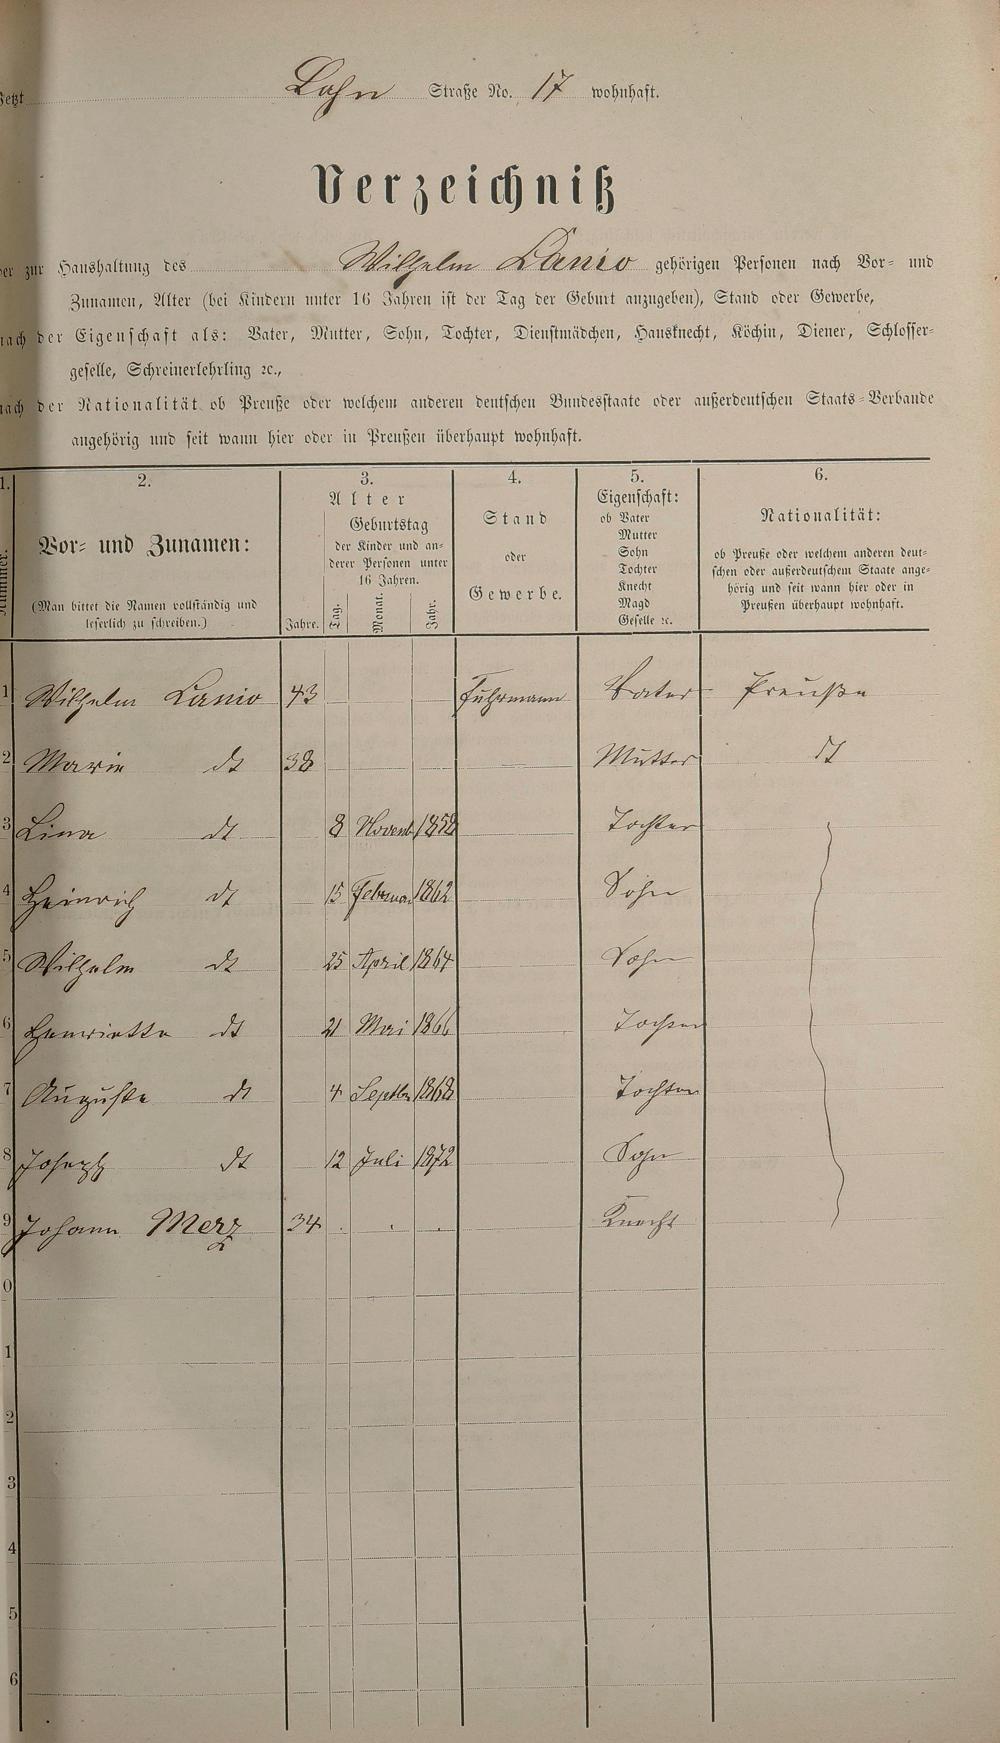 Jetzt Lahn Straße No. 17 wohnhaft.
Verzeichniß
der zur Haushaltung des Wilhelm Lanio gehörigen Personen nach Vor- und
Zunamen, Alter (bei Kindern unter 16 Jahren ist der Tag der Geburt anzugeben), Stand oder Gewerbe,
nach der Eigenschaft als: Vater, Mutter, Sohn, Tochter, Dienstmädchen, Hausknecht, Köchin, Diener, Schlosser-
geselle, Schreinerlehrling ꝛc.,
nach der Nationalität ob Preuße oder welchem anderen deutschen Bundesstaate oder außerdeutschen Staats-Verbande
angehörig und seit wann hier oder in Preußen überhaupt wohnhaft.
1. 2. 3. 4. 5. 6.
Nummer.
Vor- und Zunamen:
(Man bittet die Namen vollständig und
leserlich zu schreiben.)
Alter
Jahre.
Geburtstag
der Kinder und an-
derer Personen unter
16 Jahren.
Tag. Monat. Jahr.
Stand
oder
Gewerbe.
Eigenschaft:
ob Vater
Mutter
Sohn
Tochter
Knecht
Magd
Geselle ꝛc.
Nationalität:
ob Preuße oder welchem anderen deut-
schen oder außerdeutschem Staate ange-
hörig und seit wann hier oder in
Preußen überhaupt wohnhaft.
1 Wilhelm Lanio 43 Fuhrmann Vater Preuße
2 Marie dt 38 Mutter dt
3 Lina dt 8 Novenb 1858 Tochter
4 Heinrich dt 15 Februar 1862 Sohn
5 Wilhelm dt 25 April 1864 Sohn
6 Henriette dt 21 Mai 1866 Tochter
7 Auguste dt 4 Septbr 1868 Tochter
8 Joseph dt 12 Juli 1872 Sohn
9 Johann Merz 34 Knecht
0
1
2
3
4
5
6